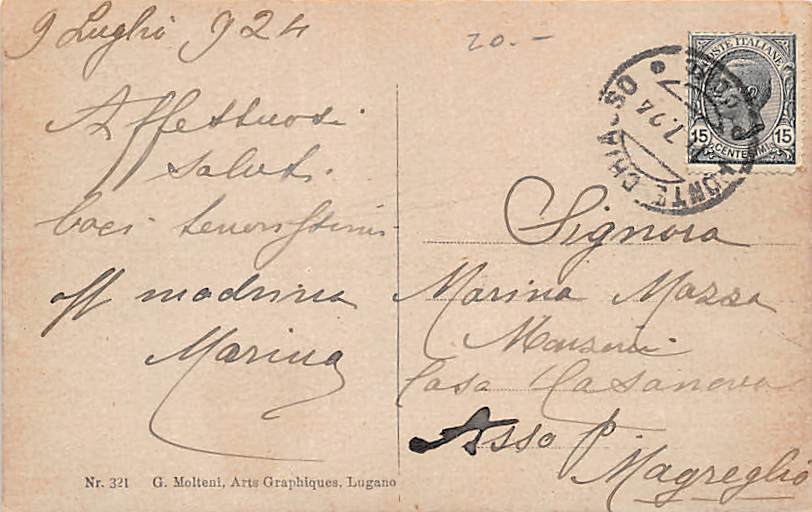 9 Luglio 924
Affettuosi
saluti
baci tenerissimi
aff madrina
Marina
20.-
POSTE ITALIANE
15 15
CENTESIMI
PONTE CHIASSO
7.24
Signora
Marina Mazza
Manzoni
Casa Casanova
Asso P.
Magreglio
Nr. 321 G. Molteni, Arts Graphiques, Lugano